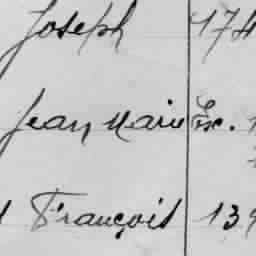 Joseph 174
Jean Marie Esc.
François 139